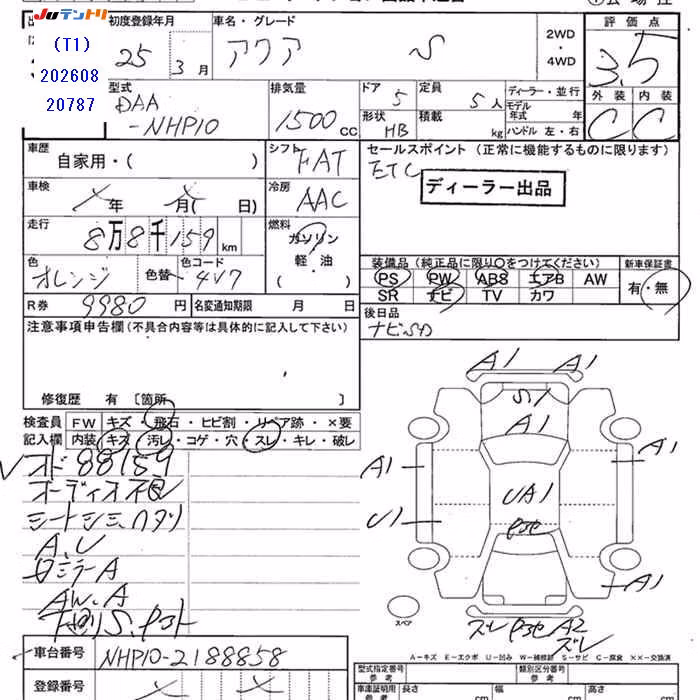 Juテントリ
(T1)
202608
20787
初度登録年月
25 3月
車名・グレード
アクア S
2WD
・
4WD
評価点
3.5
外装 内装
C C
型式
DAA
-NHP10
排気量
1500 CC
ドア 5
定員 5人
形状 HB
積載 kg
ディーラー・並行
モデル年式 年
ハンドル 左・右
車歴
自家用・( )
シフト
FAT
セールスポイント (正常に機能するものに限ります)
ETC
ディーラー出品
車検
×年 ×月( 日)
冷房
AAC
走行
8万8千159 km
燃料
ガソリン
軽・油
( )
色
オレンジ
色替
色コード
4V7
装備品 (純正品に限り○をつけてください)
PS PW ABS エアB AW
SR ナビ TV カワ
新車保証書
有・無
R券 9980円
名変通知期限 月 日
後日品
ナビSD
注意事項申告欄 (不具合内容等は具体的に記入して下さい)
修復歴 有 〔箇所 〕
検査員
記入欄
FW キズ・飛石・ヒビ割・リペア跡・×要
内装 キズ・汚レ・コゲ・穴・スレ・キレ・破レ
オド 88159
オーディオ不良
シートシミ、ヘタリ
A、U
ロミラーA
AW、A
下廻りS、Pヌケ
A1 A1
S1
A1
A1 A1
UA1
U1
A1
スレ A2
スレ
スペア
A-キズ E-エクボ U-凹み W-補修跡 S-サビ C-腐食 ××-交換済
車台番号 NHP10-2188858
登録番号 × ×
型式指定番号
参考
類別区分番号
参考
車庫証明用
参考
長さ cm
幅 cm
高さ cm